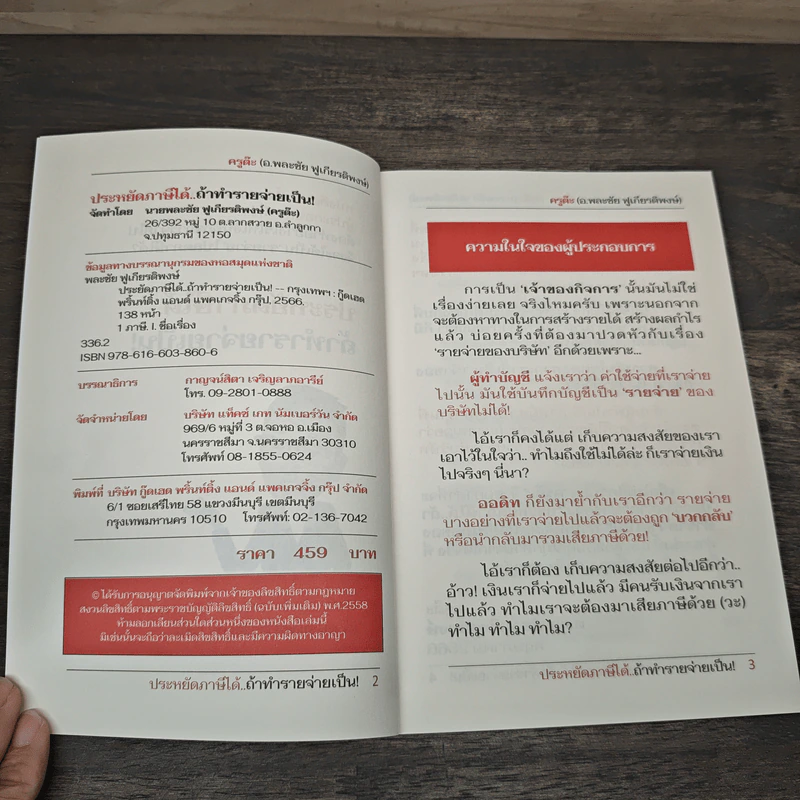 ครูต๊ะ (อ.พละชัย ฟูเกียรติพงษ์)
ประหยัดภาษีได้..ถ้าทำรายจ่ายเป็น!
จัดทำโดย นายพละชัย ฟูเกียรติพงษ์ (ครูต๊ะ)
26/392 หมู่ 10 ต.ลาดสวาย อ.ลำลูกกา
จ.ปทุมธานี 12150
ข้อมูลทางบรรณานุกรมของหอสมุดแห่งชาติ
พละชัย ฟูเกียรติพงษ์
ประหยัดภาษีได้..ถ้าทำรายจ่ายเป็น! -- กรุงเทพฯ : กู๊ดเฮด
พริ้นท์ติ้ง แอนด์ แพคเกจจิ้ง กรุ๊ป, 2566.
138 หน้า
1 ภาษี. I. ชื่อเรื่อง
336.2
ISBN 978-616-603-860-6
บรรณาธิการ กาญจน์สิตา เจริญลาภอารีย์
โทร. 09-2801-0888
จัดจำหน่ายโดย บริษัท แท็คซ์ เภท นัมเบอร์วัน จำกัด
969/6 หมู่ที่ 3 ต.จอหอ อ.เมือง
นครราชสีมา จ.นครราชสีมา 30310
โทรศัพท์ 08-1855-0624
พิมพ์ที่ บริษัท กู๊ดเฮด พริ้นท์ติ้ง แอนด์ แพคเกจจิ้ง กรุ๊ป จำกัด
6/1 ซอยเสรีไทย 58 แขวงมีนบุรี เขตมีนบุรี
กรุงเทพมหานคร 10510 โทรศัพท์: 02-136-7042
ราคา 459 บาท
© ได้รับการอนุญาตจัดพิมพ์จากเจ้าของลิขสิทธิ์ตามกฎหมาย
สงวนลิขสิทธิ์ตามพระราชบัญญัติลิขสิทธิ์ (ฉบับเพิ่มเติม) พ.ศ.2558
ห้ามลอกเลียนส่วนใดส่วนหนึ่งของหนังสือเล่มนี้
มิเช่นนั้นจะถือว่าละเมิดลิขสิทธิ์และมีความผิดทางอาญา
ประหยัดภาษีได้..ถ้าทำรายจ่ายเป็น! 2
ครูต๊ะ (อ.พละชัย ฟูเกียรติพงษ์)
ความในใจของผู้ประกอบการ
การเป็น 'เจ้าของกิจการ' นั้นมันไม่ใช่
เรื่องง่ายเลย จริงไหมครับ เพราะนอกจาก
จะต้องหาทางในการสร้างรายได้ สร้างผลกำไร
แล้ว บ่อยครั้งที่ต้องมาปวดหัวกับเรื่อง
'รายจ่ายของบริษัท' อีกด้วยเพราะ...
ผู้ทำบัญชี แจ้งเราว่า ค่าใช้จ่ายที่เราจ่าย
ไปนั้น มันใช้บันทึกบัญชีเป็น 'รายจ่าย' ของ
บริษัทไม่ได้!
ไอ้เราก็คงได้แต่ เก็บความสงสัยของเรา
เอาไว้ในใจว่า.. ทำไมถึงใช้ไม่ได้ล่ะ ก็เราจ่ายเงิน
ไปจริงๆ นี่นา?
ออดิท ก็ยังมาย้ำกับเราอีกว่า รายจ่าย
บางอย่างที่เราจ่ายไปแล้วจะต้องถูก 'บวกกลับ'
หรือนำกลับมารวมเสียภาษีด้วย!
ไอ้เราก็ต้อง เก็บความสงสัยต่อไปอีกว่า..
อ้าว! เงินเราก็จ่ายไปแล้ว มีคนรับเงินจากเรา
ไปแล้ว ทำไมเราจะต้องมาเสียภาษีด้วย (วะ)
ทำไม ทำไม ทำไม?
ประหยัดภาษีได้..ถ้าทำรายจ่ายเป็น! 3